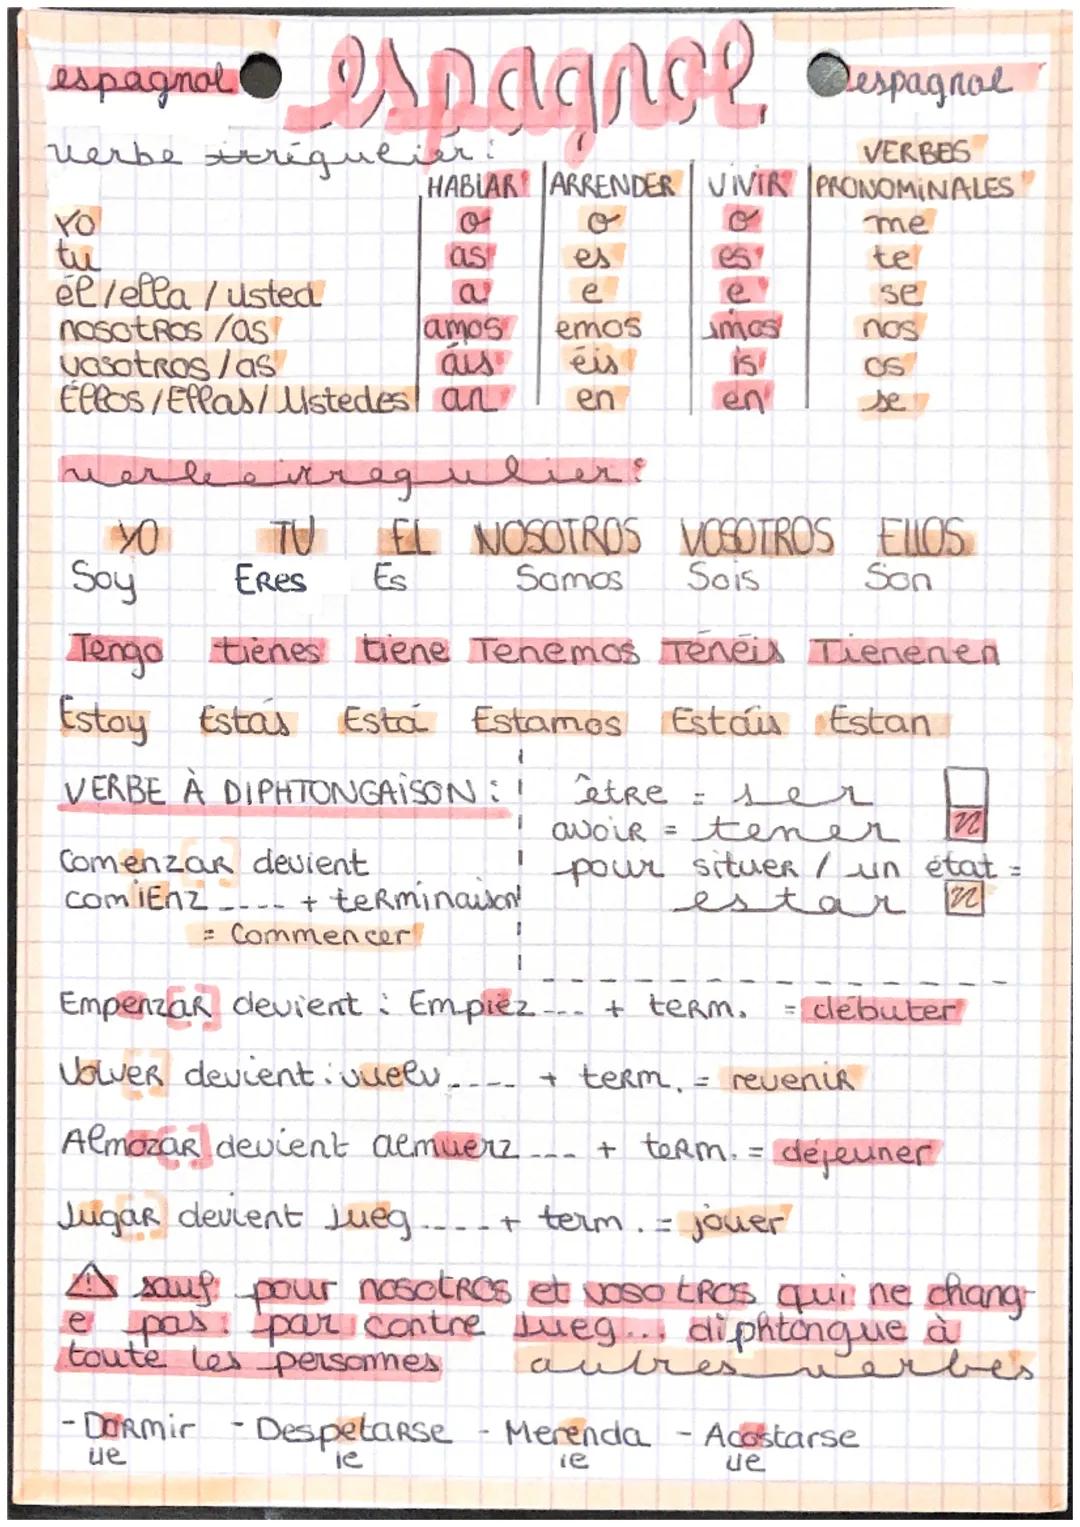 espagnol espagnol espagnol
verbe irrégulier :
VERBES
HABLAR ARRENDER VIVIR PRONOMINALES
YO o o o me
tu as es es te
él/ella/usted a e e se
nosotros/as amos emos imos nos
vosotros/as áis éis is os
Éllos/Ellas/Ustedes an en en se
verbe irregulier :
YO TU EL NOSOTROS VOSOTROS ELLOS
Soy ERes Es Somos Sois Son
Tengo tiènes tiene Tenemos Ténéis Tienenen
Estoy Estás Está Estamos Estáis Estan
VERBE À DIPHTONGAISON :
comenzar devient
comiEnz ---- + terminaison
= Commencer
être = ser
avoir = tener n
pour situer / un état =
estar n
Empenzar devient : Empiéz --- + term. = débuter
Volver devient : vuelv ---- + term. = revenir
Almozar devient almuerz --- + term. = déjeuner
Jugar devient Jueg ---- + term. = jouer
⚠ sauf pour nosotros et vosotros qui ne chang-
e pas. par contre Jueg... diphtongue à
toute les personnes
autres verbes
- Dormir - Despetarse - Merenda - Acostarse
ue ie ie ue